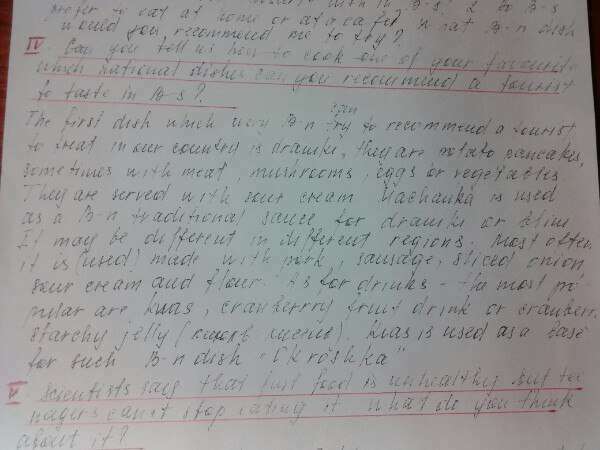 prefer to eat at home or at a cafe? What B-n dish
would you recommend me to try?
IV. Can you tell us how to cook one of your favourite
which national dishes can you recommend a tourist
to taste in B-s?
can
The first dish which every B-n try to recommend a tourist
to treat in our country is draniki, they are potato pancakes,
sometimes with meat, mushrooms, eggs or vegetables
They are served with sour cream. Machanka is used
as a B-n traditional sauce for draniki or blini
It may be different in different regions. Most often
it is (used) made with pork, sausage, sliced onion
sour cream and flour. As for drinks - the most po-
pular are kvas, cranberry fruit drink or cranberr.
starchy jelly (). Kvas is used as a base
for such B-n dish "Okroshka"
V. Scientists say that fast food is unhealthy but tee
nagers can't stop eating it what do you think
about it?